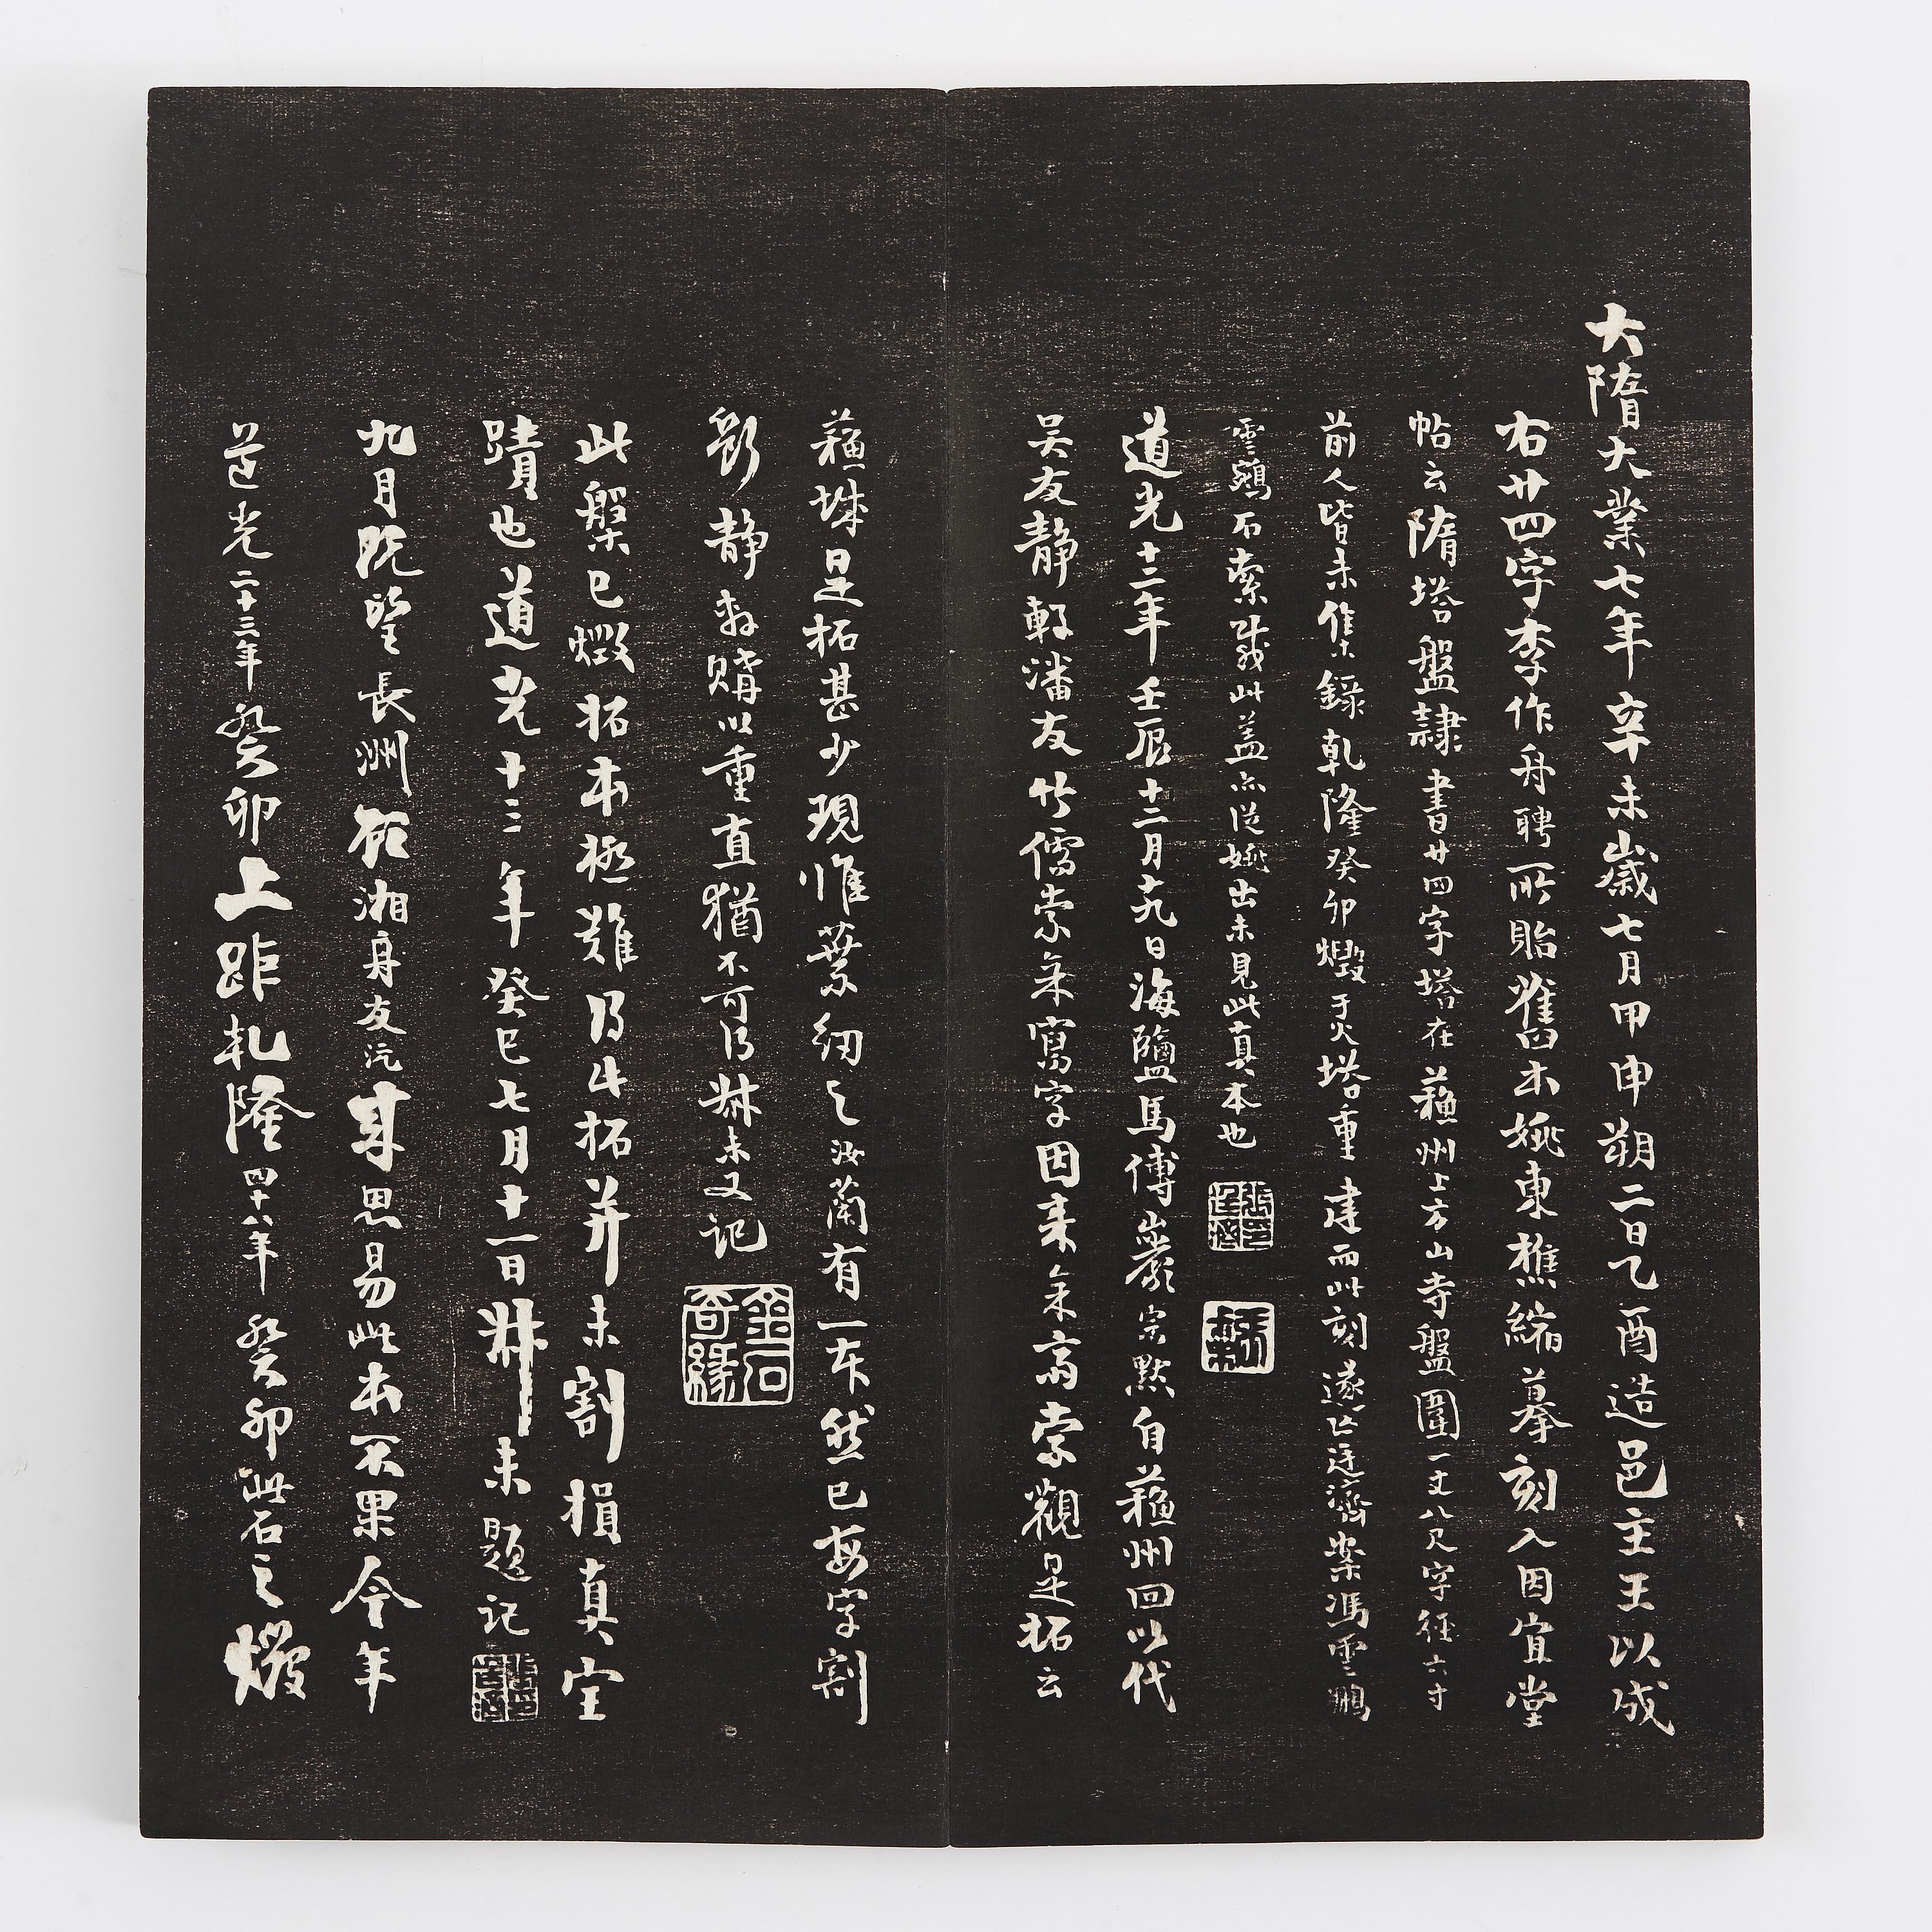 大隋大業七年辛未歲七月甲申朔二日乙酉造邑主王以成
右廿四字李作舟聘所貽舊本姚東樵縮摹刻入因宜堂
帖云隋塔盤隸書廿四字塔在蘓州上方山寺盤圍一丈八尺字徑六寸
前人皆未集錄乾隆癸卯燬于火塔重建而此刻遂亡迋濟案馮雲鵬
雲鵷石索載此盖亦從姚出未見此真本也
道光十二年壬辰十二月十九日海鹽馬傅巖宗默自蘓州回以代
吴友静軒潘友竹儒索余寫字因來余齋索觀是拓云
蘓垛是拓甚少現惟葉紉之汝蘭有一本然已每字割
裂静軒購以重直猶不可得叔未又記
金石奇緣
此槃已燬拓本極難得此拓并未割損真宝
蹟也道光十三年癸巳七月十一日叔未題記
九月既望長洲顧湘舟友沅来思易此本不果今年
道光二十三年癸卯上距乾隆四十八年癸卯此石之燬